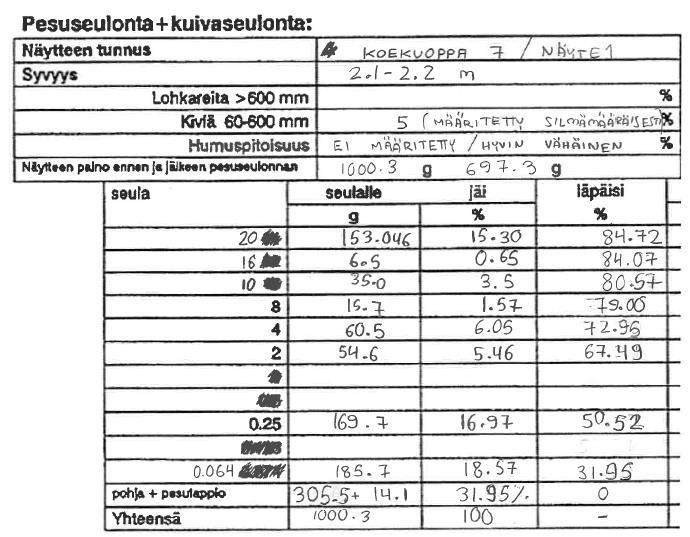 Pesuseulonta+kuivaseulonta:
Näytteen tunnus KOEKUOPPA 7 / NÄYTE 1
Syvyys 2.1-2.2 m
Lohkareita >600 mm %
Kiviä 60-600 mm 5 (MÄÄRITETTY SILMÄMÄÄRÄISESTI) %
Humuspitoisuus EI MÄÄRITETTY / HYVIN VÄHÄINEN %
Näytteen paino ennen ja jälkeen pesuseulonnan 1000.3 g 697.3 g
seula seulalle jäi läpäisi
g % %
20 153.046 15.30 84.72
16 6.5 0.65 84.07
10 35.0 3.5 80.57
8 15.7 1.57 79.00
4 60.5 6.05 72.95
2 54.6 5.46 67.49
0.25 169.7 16.97 50.52
0.064 185.7 18.57 31.95
pohja + pesutappio 305.5+ 14.1 31.95% 0
Yhteensä 1000.3 100 -